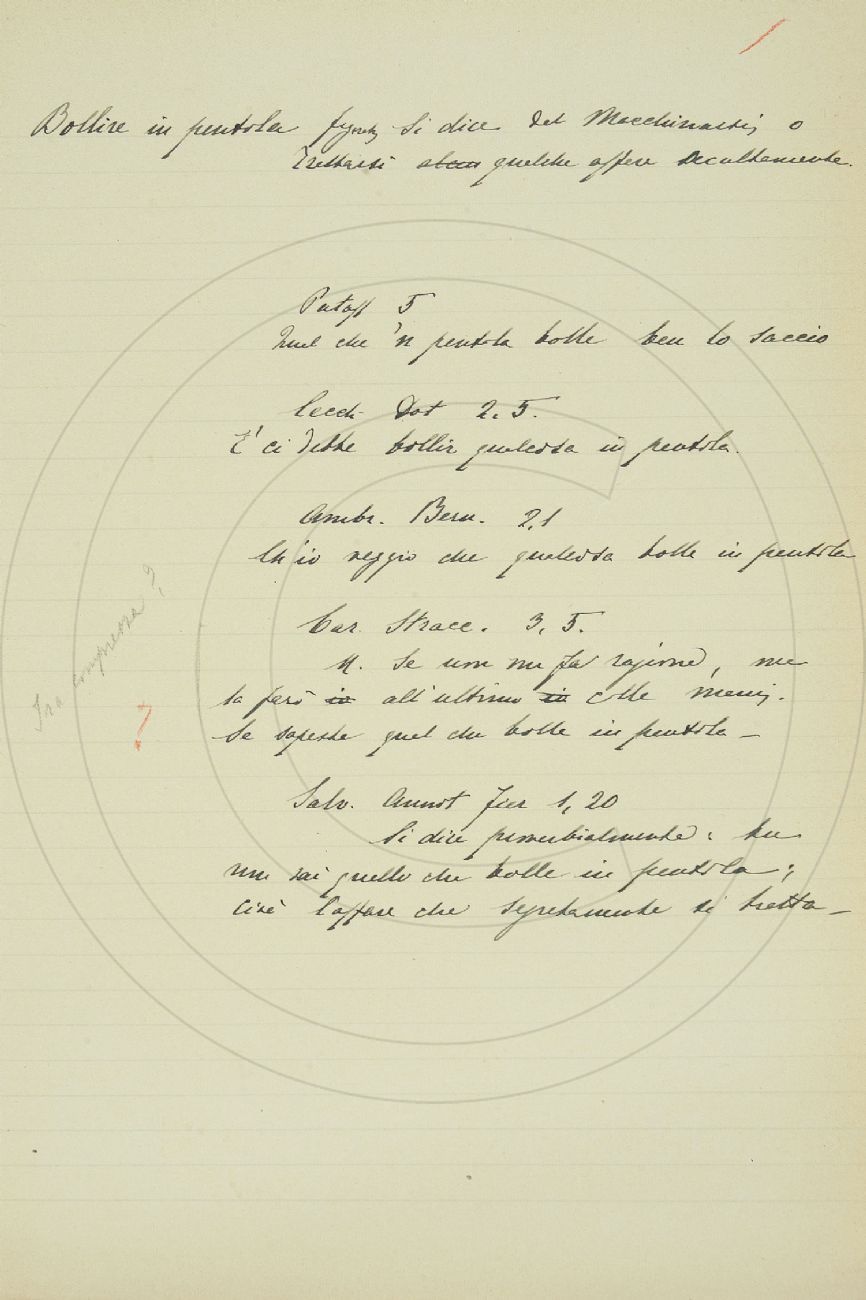 Bollire in pentola figurat. Si dice del Macchinarsi, o
Trattarsi alcun qualche affare occultamente.
Pataff 5
Quel che 'n pentola bolle ben lo saccio
Cecch. Dot 2, 5.
E' ci debbe bollir qualcosa in pentola.
Ambr. Bern. 2,1
Ch'io veggio che qualcosa bolle in pentola
Car. Strace. 3, 5.
M. Se non mi fa ragione, me
la farò in all'ultimo in colle mani.
Se sapeste quel che bolle in pentola —
Salv. Annot Fier 1, 20
Si dice proverbialmente: tu
non sai quello che bolle in pentola;
Cioè l'affare che segretamente si tratta —
Tra compressa?
?